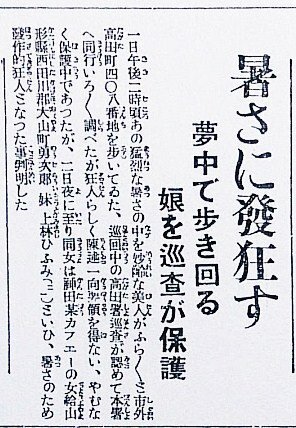 暑さに發狂す
夢中で歩き回る
娘を巡査が保護
一日午後二時頃あの猛烈な暑さの中を妙齢な美人がふら〱と市外
高田町四〇八番地を歩いてゐた、巡回中の高田署巡査が認めて本署
へ同行いろ〱調べたが狂人らしく陳述一向要領を得ない、やむな
く保護中であつたが、二日夜に至り同女は神田某カフエーの女給山
形縣西田川郡大山町勇次郎 妹 上林ひふみ(二〇)といひ、暑さのため
發作的狂人となつた事判明した